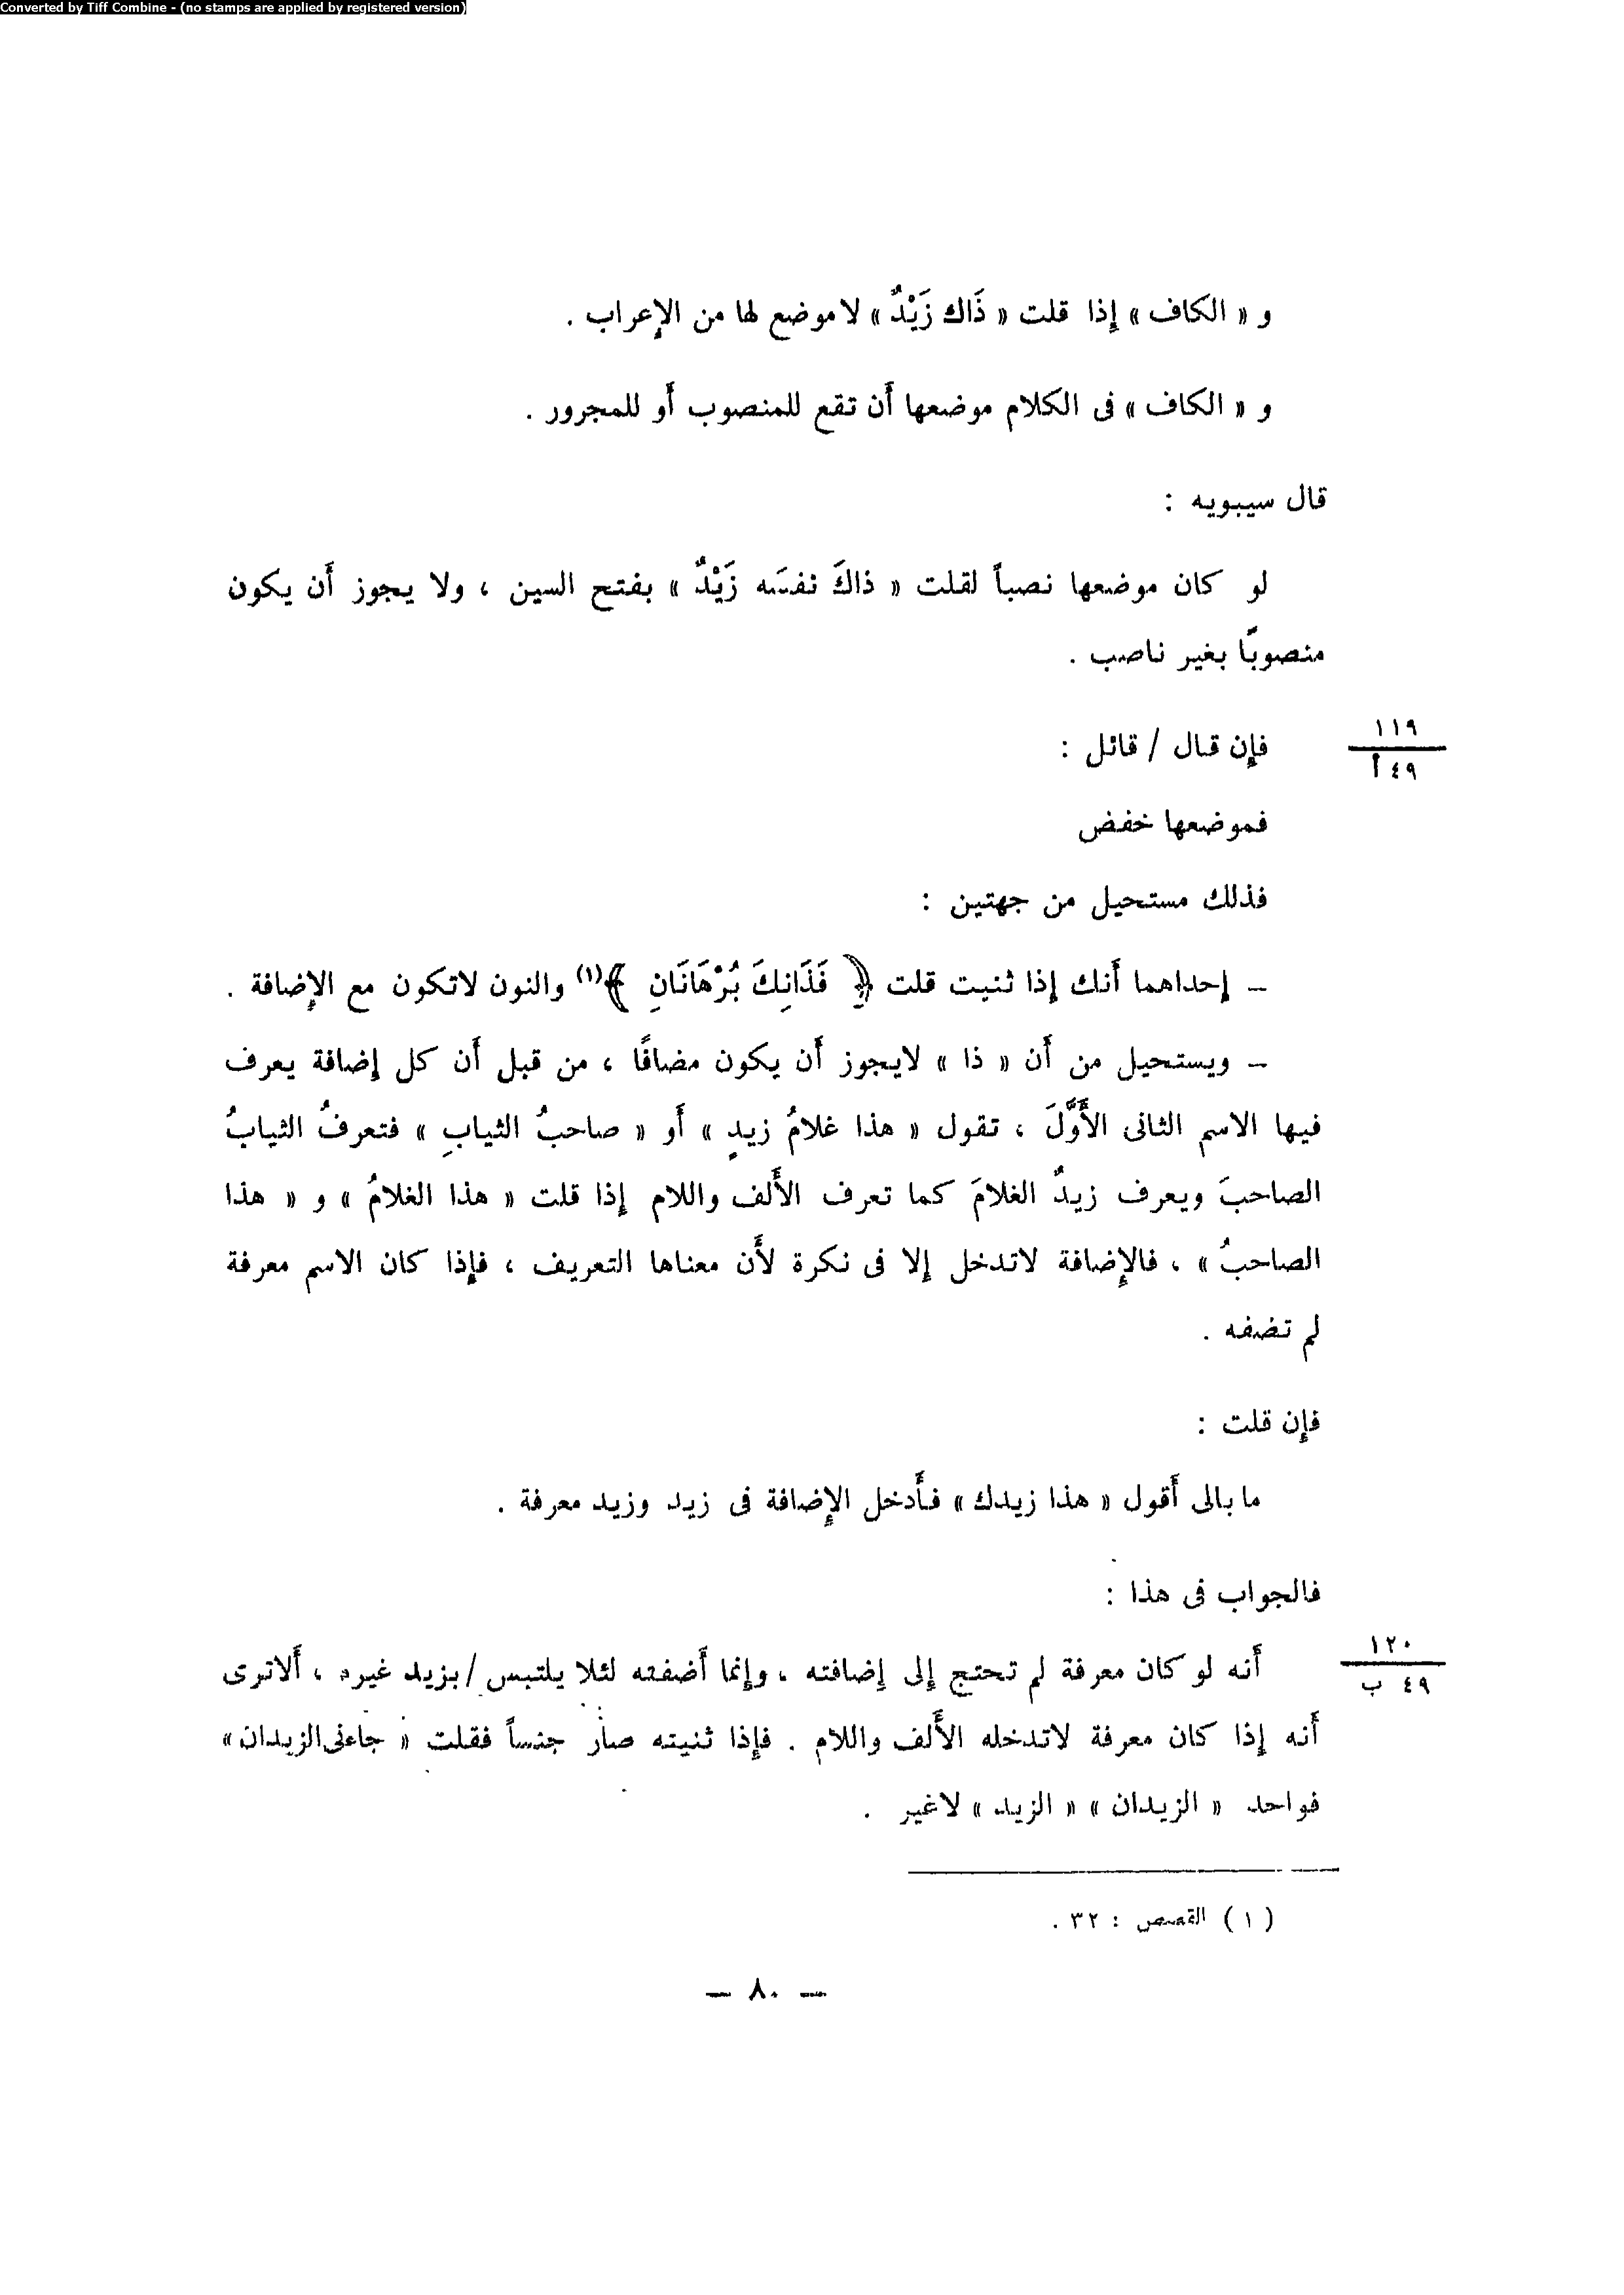 Converted by Tiff Combine - (no stamps are applied by registered version)
و « الكاف » إِذا قلت « ذَاك زَيْدٌ » لا موضع لها من الإِعراب .
و « الكاف » فى الكلام موضعها أَن تقع للمنصوب أَو للمجرور .
قال سيبويه :
لو كان موضعها نصباً لقلت « ذاكَ نفسَه زَيْدٌ » بفتح السين ، ولا يجوز أَن يكون
منصوبًا بغير ناصب .
١١٩
فإِن قال / قائل :
٤٩ أ
فموضعها خفض
فذلك مستحيل من جهتين :
– إِحداهما أَنك إِذا ثنيت قلت ﴿ فَذَانِكَ بُرْهَانَانِ ﴾(١) والنون لاتكون مع الإِضافة .
– ويستحيل من أَن « ذا » لايجوز أَن يكون مضافًا ، من قبل أَن كل إِضافة يعرف
فيها الاسم الثانى الأَوَّلَ ، تقول « هذا غلامُ زيدٍ » أَو « صاحبُ الثيابِ » فتعرفُ الثيابُ
الصاحبَ ويعرف زيدٌ الغلامَ كما تعرف الأَلف واللام إِذا قلت « هذا الغلامُ » و « هذا
الصاحبُ » ، فالإِضافة لاتدخل إلا فى نكرة لأَن معناها التعريف ، فإِذا كان الاسم معرفة
لم تضفه .
فإِن قلت :
ما بالى أَقول « هذا زيدك » فأَدخل الإِضافة فى زيد وزيد معرفة .
فالجواب فى هذا :
١٢٠
٤٩ ب
أَنه لو كان معرفة لم تحتج إِلى إِضافته ، وإِنما أَضفته لئلا يلتبس / بزيد غيره ، أَلاترى
أَنه إِذا كان معرفة لاتدخله الأَلف واللام . فإِذا ثنيته صار جنساً فقلت « جاءنى الزيدان »
فواحد « الزيدان » « الزيد » لاغير .
( ١ ) القصص : ٣٢ .
– ٨٠ –